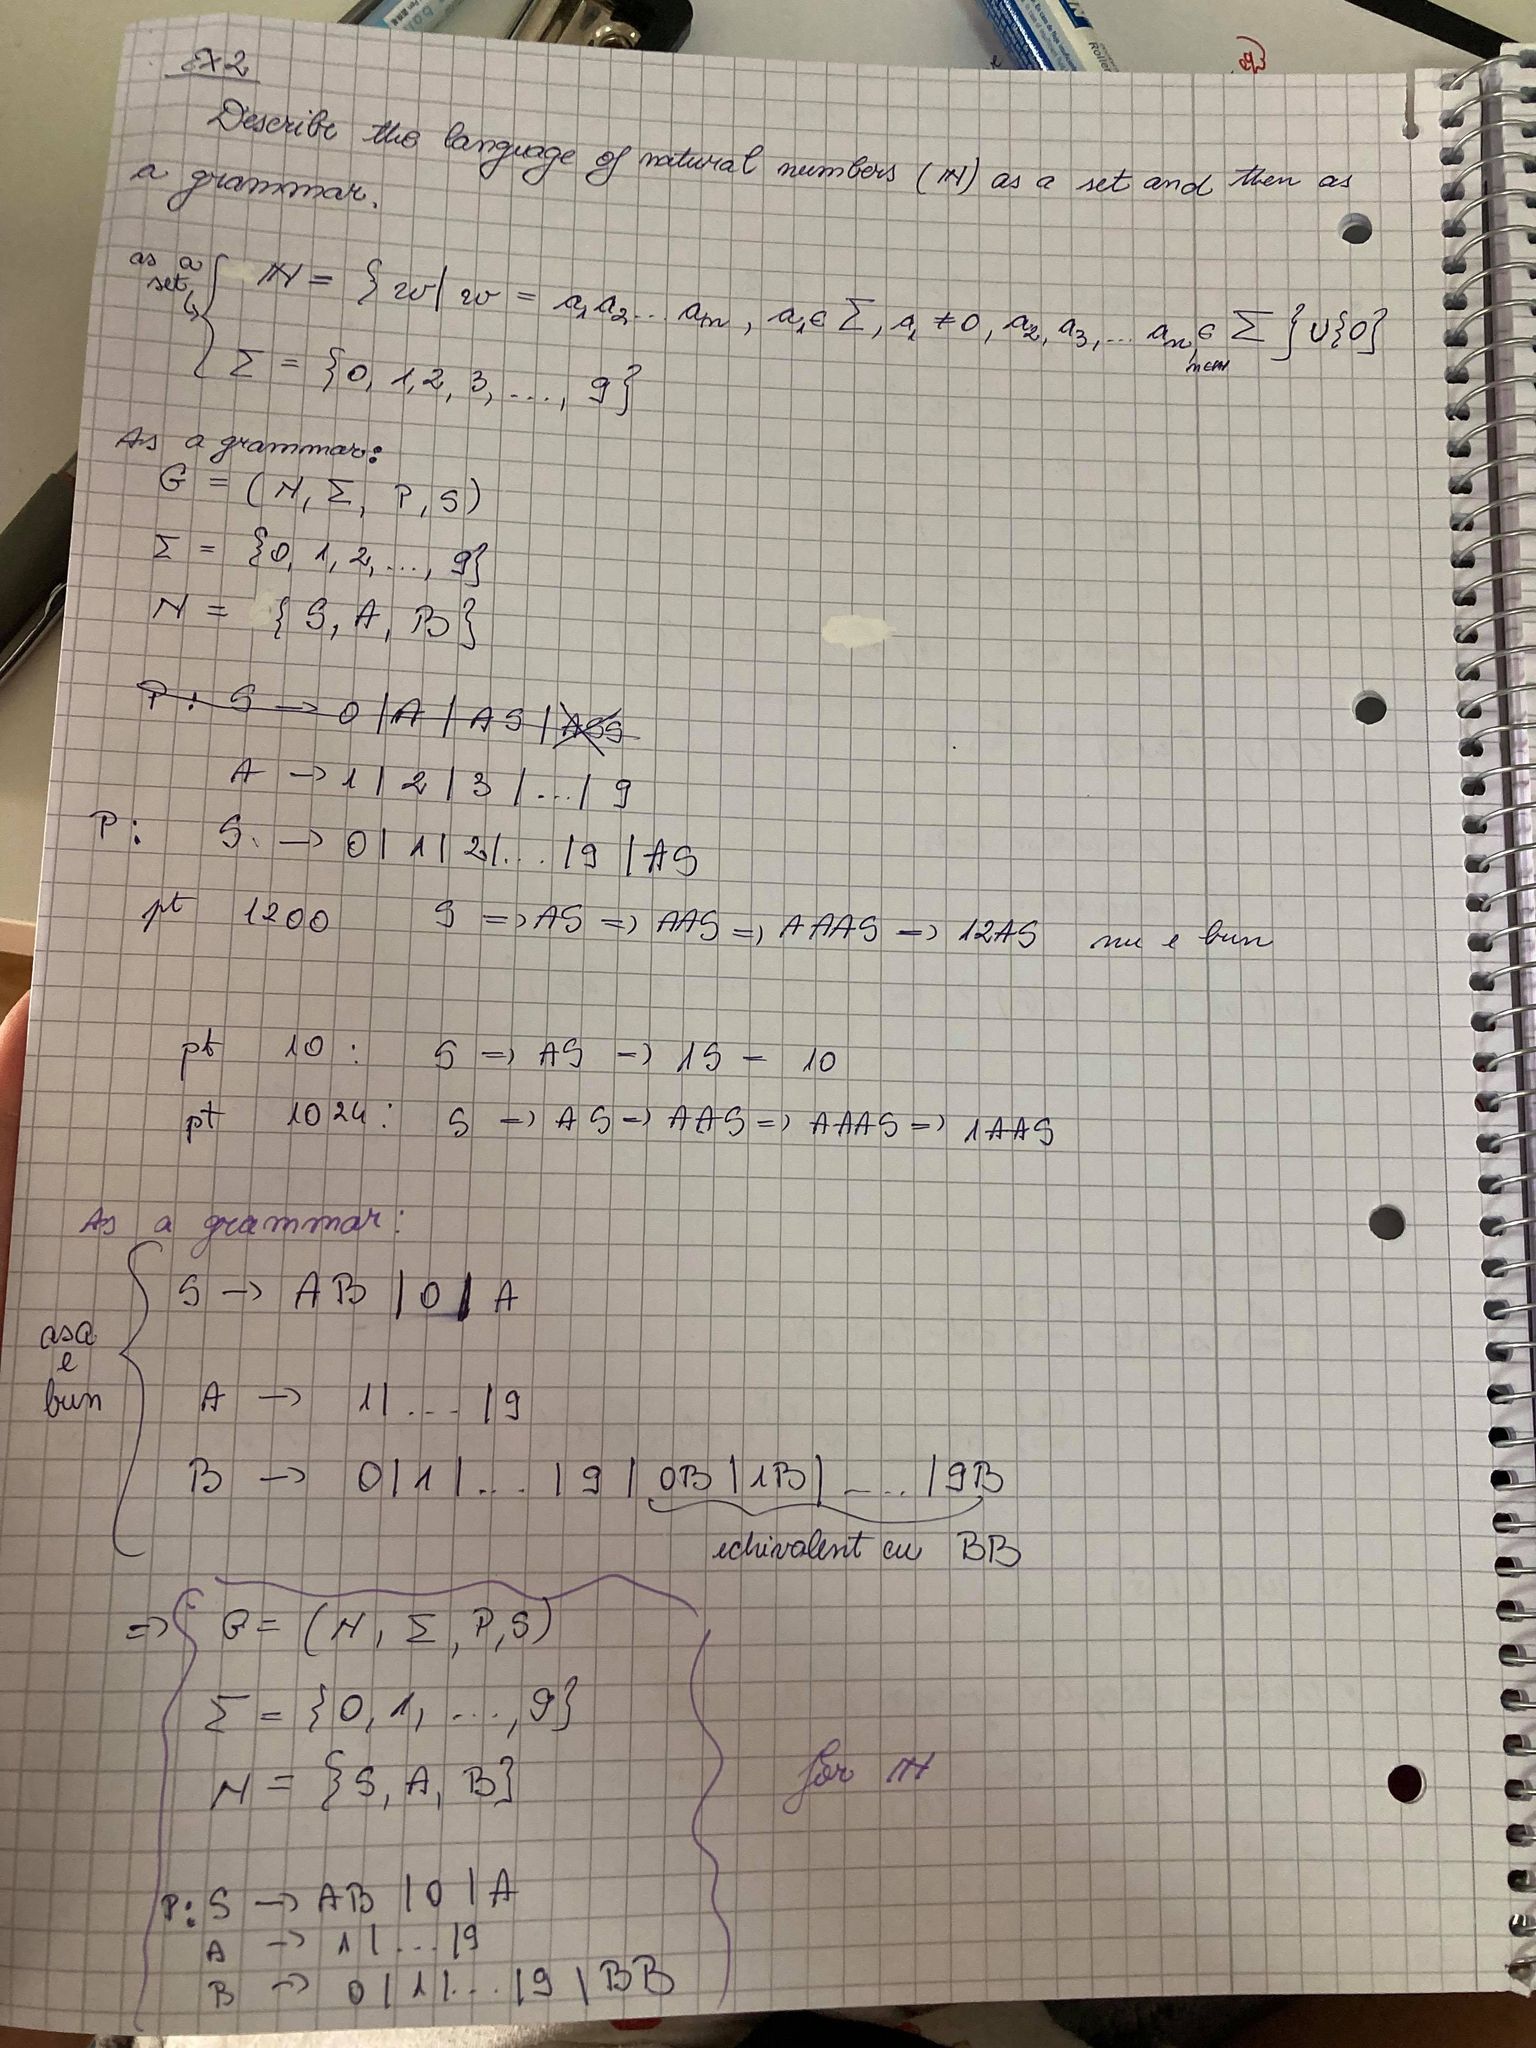 Ex2
Describe the language of natural numbers (ℕ) as a set and then as
a grammar.
as a
set
ℕ = { w | w = a₁a₂... aₙ, a₁ ∈ Σ, a₁ ≠ 0, a₂, a₃, ... aₙ ∈ Σ } ∪ {0}
n∈ℕ
Σ = {0, 1, 2, 3, ..., 9}
As a grammar:
G = (N, Σ, P, S)
Σ = {0, 1, 2, ..., 9}
N = {S, A, B}
P: S → 0 | A | AS | ASS
A → 1 | 2 | 3 | ... | 9
P: S → 0 | 1 | 2 | ... | 9 | AS
pt 1200 S => AS => AAS => AAAS => 12AS nu e bun
pt 10: S => AS => 1S = 10
pt 1024: S => AS => AAS => AAAS => 1AAS
As a grammar:
S → AB | 0 | A
asa
e
bun
A → 1 | ... | 9
B → 0 | 1 | ... | 9 | 0B | 1B | ... | 9B
echivalent cu BB
=> G = (N, Σ, P, S)
Σ = {0, 1, ..., 9}
N = {S, A, B}
for ℕ
P: S → AB | 0 | A
A → 1 | ... | 9
B → 0 | 1 | ... | 9 | BB